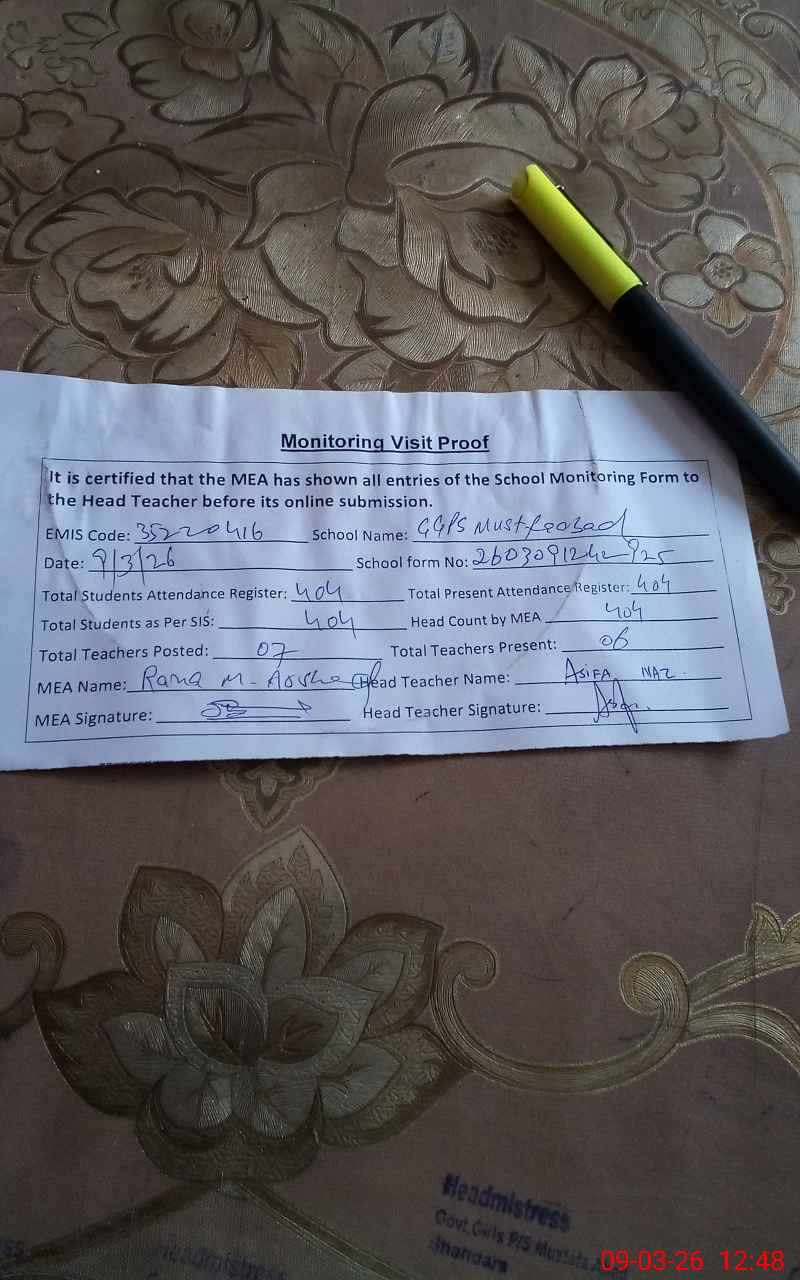 Monitoring Visit Proof
It is certified that the MEA has shown all entries of the School Monitoring Form to
the Head Teacher before its online submission.
EMIS Code: 35220416 School Name: GGPS Mustfaabad
Date: 9/3/26 School form No: 2603091242925
Total Students Attendance Register: 404 Total Present Attendance Register: 404
Total Students as Per SIS: 404 Head Count by MEA 404
Total Teachers Posted: 07 Total Teachers Present: 06
MEA Name: Rana M. Head Teacher Name: ASIFA NAZ.
MEA Signature: Head Teacher Signature:
Headmistress
Govt. Girls P/S Mustafa
Bhandara
Headmistress
09-03-26 12:48